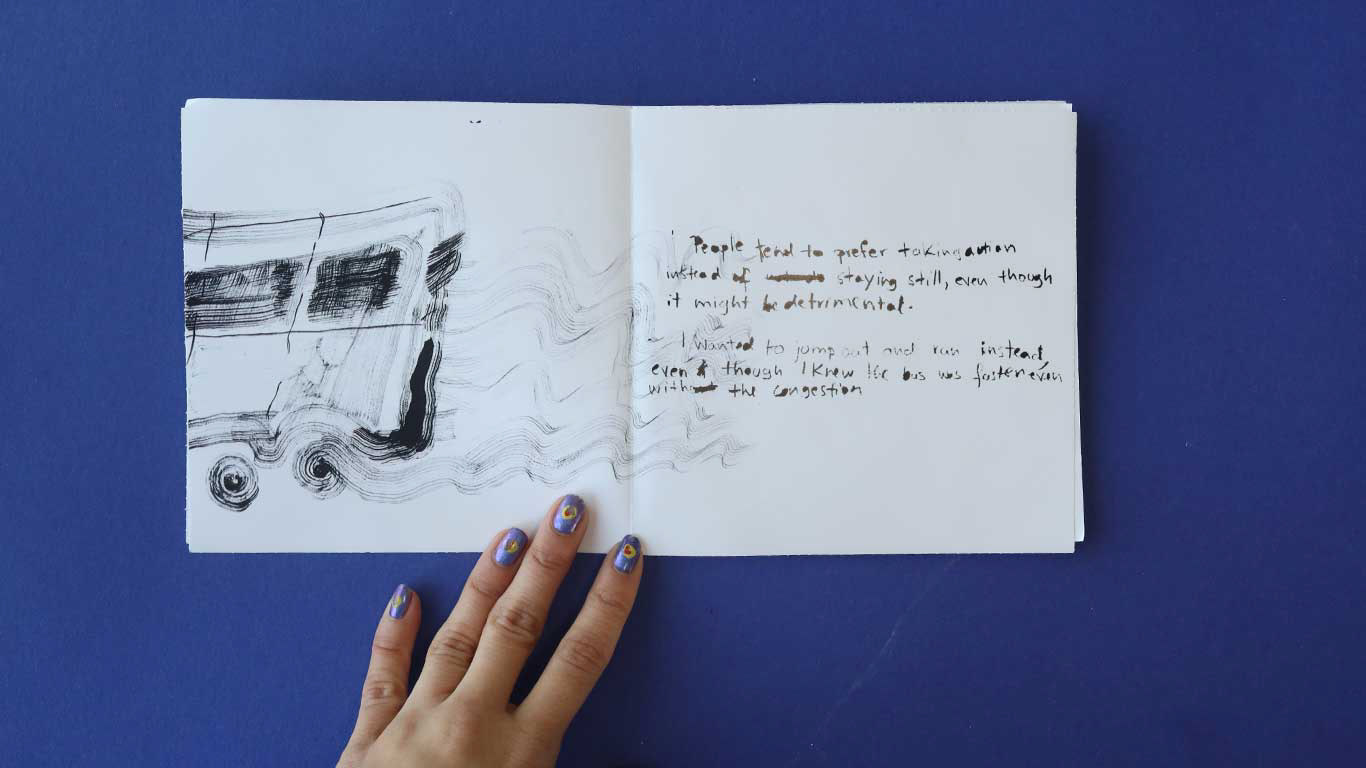 People tend to prefer taking action
instead of staying still, even though
it might be detrimental.
I wanted to jump out and run instead,
even though I knew the bus was faster even
without the congestion